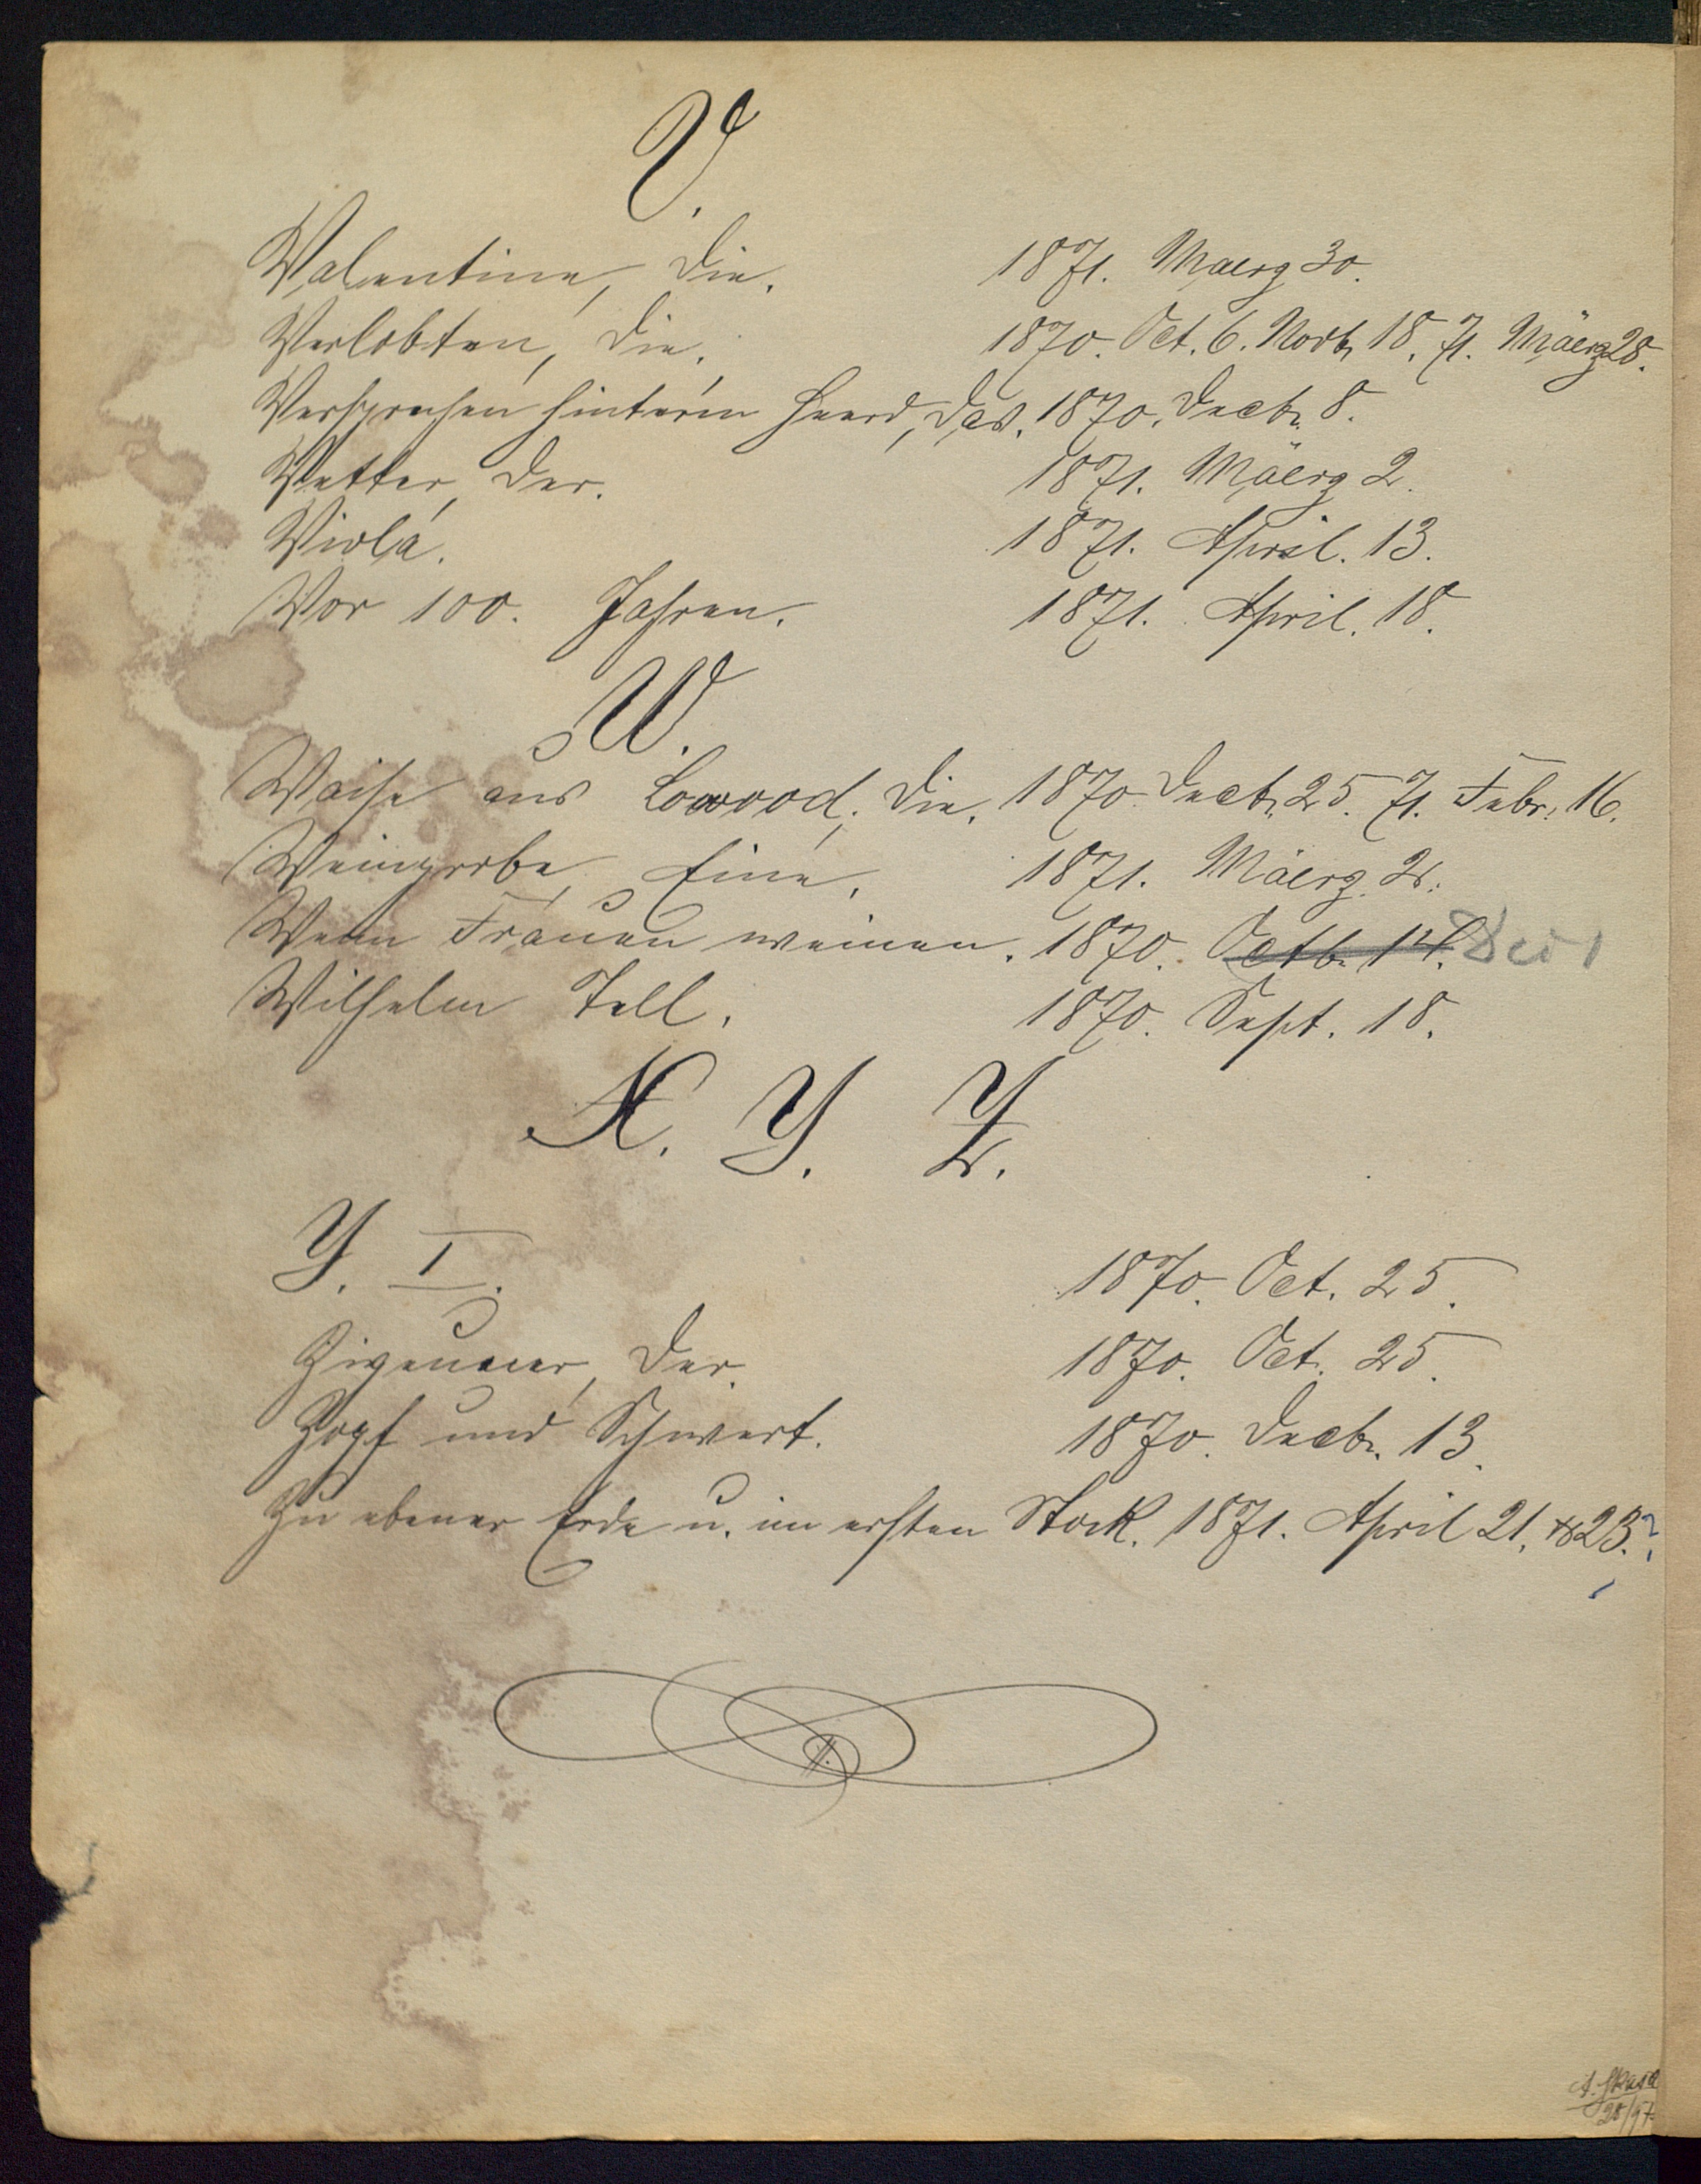 V.
Valentine, Die. 1871. Maerz 30.
Verlobten, Die. 1870. Oct. 6. Novb. 18. 71. Mäerz 28.
Versprechen hinter'm Heerd, Das. 1870. Decb. 8.
Vetter, Der. 1871. Mäerz 2.
Viola. 1871. April. 13.
Vor 100. Jahren. 1871. April. 18.
W.
Waise aus Lowood, Die. 1870. Decb. 25. 71. Febr. 16.
Weinprobe, Eine. 1871. Mäerz 2.
Wenn Frauen weinen. 1870. Octb. 14.
Wilhelm Tell. 1870. Sept. 18.
X. Y. Z.
Y. I. 1870. Oct. 25.
Zigeuner, Der. 1870. Oct. 25.
Zopf und Schwert. 1870. Decb. 13.
Zu ebener Erde u. im ersten Stock. 1871. April 21. & 23.?
28/97